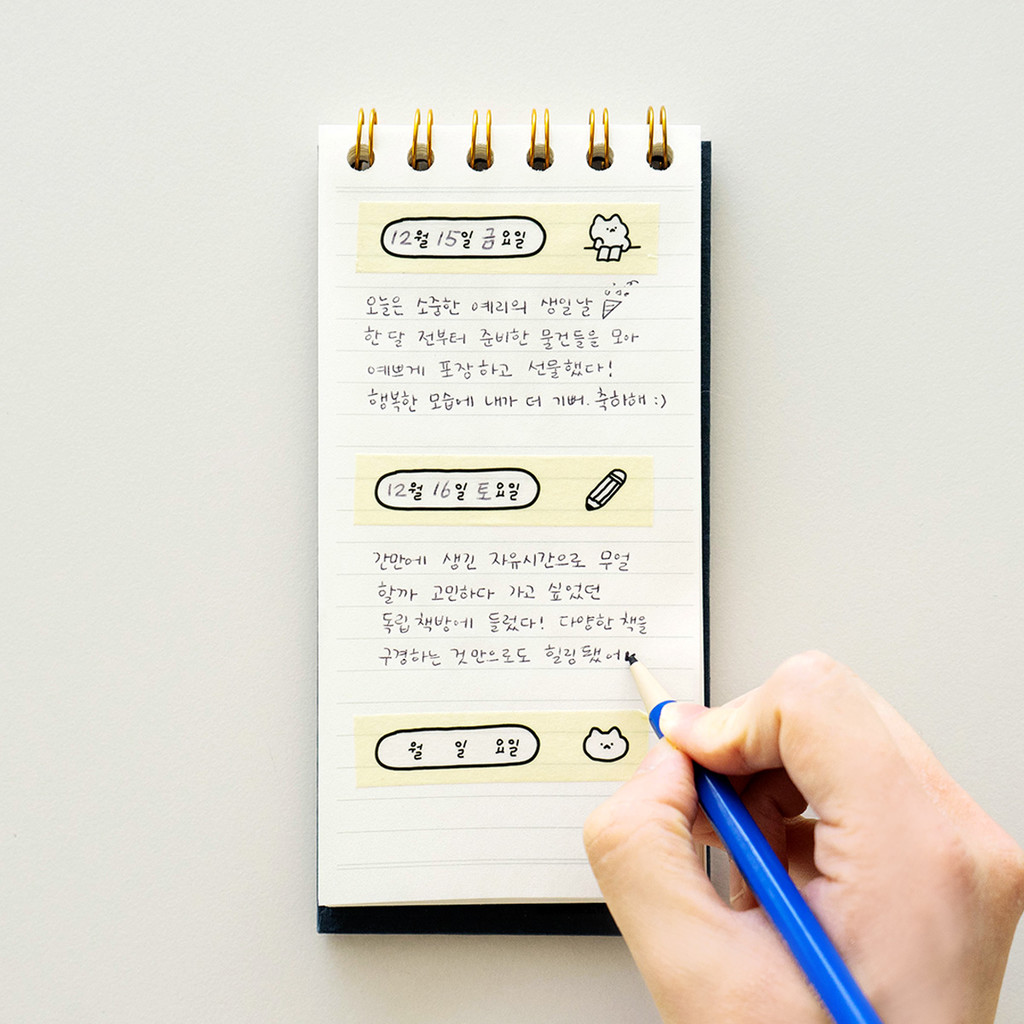 12월 15일 금요일
오늘은 소중한 예리의 생일날
한 달 전부터 준비한 물건들을 모아
예쁘게 포장하고 선물했다!
행복한 모습에 내가 더 기뻐. 축하해 :)
12월 16일 토요일
간만에 생긴 자유시간으로 무얼
할까 고민하다 가고 싶었던
독립 책방에 들렀다! 다양한 책을
구경하는 것만으로도 힐링됐어
월 일 요일